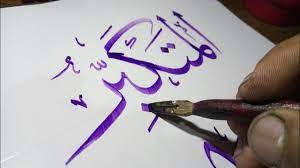 المتكبّر